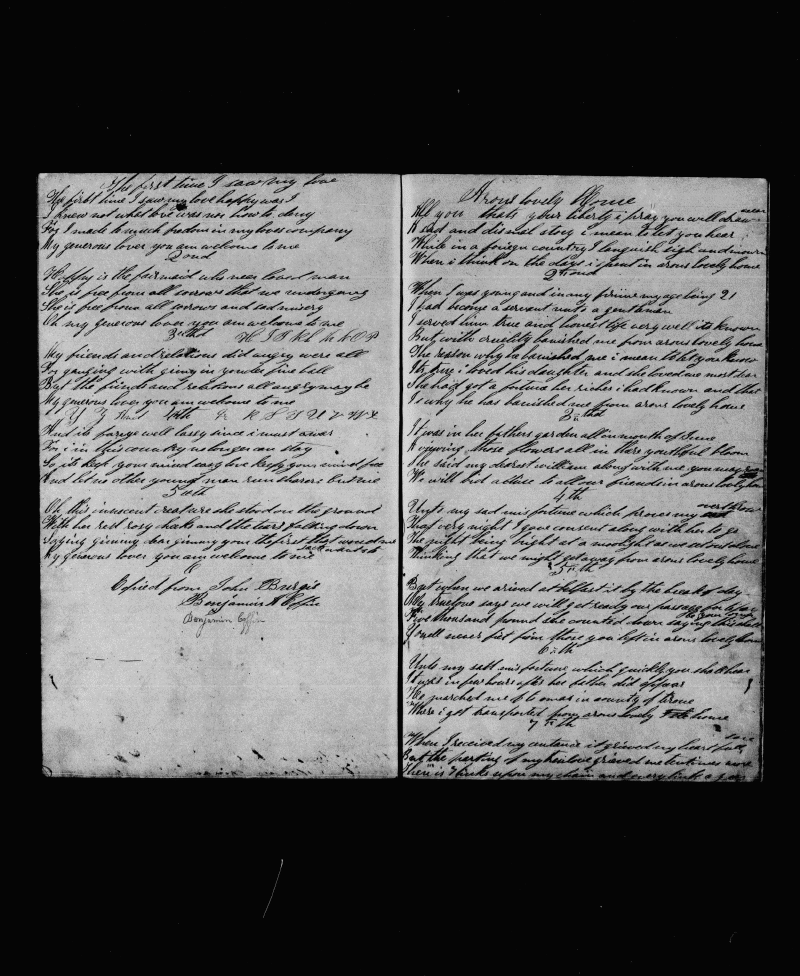 The first time I saw my love
The first time I saw my love happy was I
I knew not what love was nor how to deny
For I made to much freedom in my loves company
My generous lover you are welcome to me
2ond
Happy is the fair maid who never loved man
She is free from all sorrows that we undergang
She is free from all sorrows and sad misery
Oh my generous lover you are welcome to me
3 thd H I J K L M N O P
My friends and relations did angry were all
For ganging with ginny in yonder fire ball
But the friends and relations all angry may be
My generous lover you are welcome to me
Y Z And 4th R S S U V W X
And its farige well lassy since i must awar
For i in this country no longer can stay
So its keep your mind easy love keep your mind free
And let no older young man run sharers but me
5 oth
Oh this inuscent creature she stood on the ground
With her red rosy cheeks and the tears falling down
Saying ginny dear ginny your the first that wooed me
My generous lover you are welcome to me
Copied from John Burgis
Benjamin A Coffin
Benjamin Coffin
Arous lovely Home
All you thats your liberty i pray you will draw near
A sad and dismal story i mean to let you hear
While in a foreign country I languish sigh and mourn
When i think on the days i spent in arous lovely home
2 ond
When I was young and in my prime my age being 21
I had become a servant unto a gentleman
I served him true and honest life very well its known
But with cruelity banished me from arous lovely home
The reason why he banished me i mean to let you know
Its true i loved his daughter and she loved me most dear
She had got a fortune her riches i had known and that
I why he has banished me from arous lovely home
3 thd
It was in her fathers garden all in month of June
A viewing those flowers all in there youthful bloom
She said my dearest william along with me you may
We will bid adiue to all our friends in arous lovely home
4 th
Unto my sad misfortune which proves my overthrow
That very night I gave consent along with her to go
The night being bright at a moonlight as we set out alone
Thinking that we might get away from arous lovely home
5 th
But when we arrived at belfast it by the break of day
My truelove says we will get ready our passage for to pay
Five thousand pound she counted down saying this shall be your own
You'll never fret from those you left in arous lovely home
6 th
Unto my sad misfortune which quickly you shall hear
It was in few hours after her father did appear
He marched me of to omar in county of tirone
Where i got transported from arous lovely home
7 th
When I received my centance it grieved my heart full sore
But the parting of my truelove grieved me ten times more